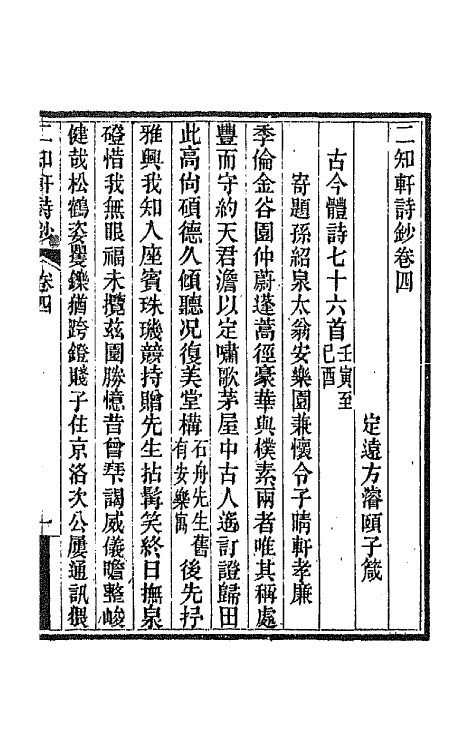 二知軒詩鈔卷四
定遠方濬頤子箴
古今體詩七十六首壬寅至己酉
寄題孫紹泉太翁安樂園兼懷令子晴軒孝廉
季倫金谷園仲蔚蓬蒿徑豪華與樸素兩者唯其稱處
豐而守約天君澹以定嘯歌茅屋中古人遙訂證歸田
此高尙碩德久傾聽况復美堂構石舟先生舊有安樂寓後先抒
雅興我知入座賓珠璣競持贈先生拈髯笑終日撫泉
磴惜我無眼福未攬茲園勝憶昔曾荣謁威儀瞻整峻
健哉松鶴姿矍鑠猶跨鐙賤子住京洛次公屢通訊猥
二知軒詩鈔
卷四
一